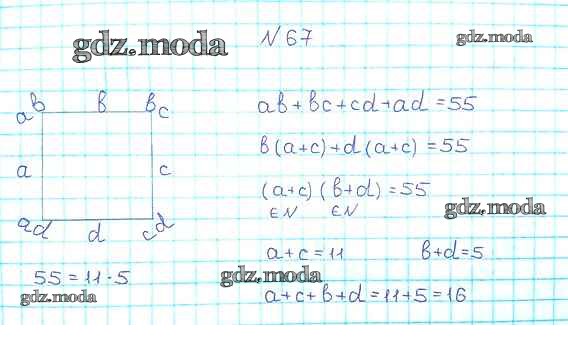 gdz.moda
N 67
gdz.moda
ab b bc
a c
ad d cd
55 = 11 · 5
gdz.moda
ab + bc + cd + ad = 55
b(a+c) + d(a+c) = 55
(a+c)(b+d) = 55
∈N ∈N
gdz.moda
a+c = 11 b+d=5
gdz.moda
a+c+b+d = 11+5 = 16